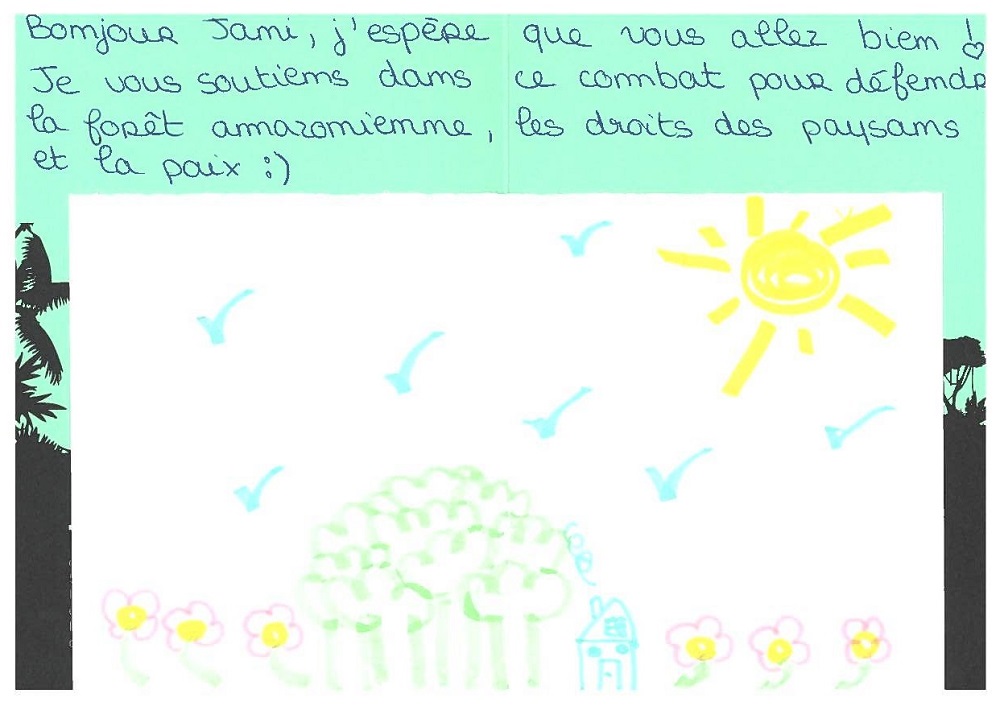 Bonjour Jami, j'espère que vous allez bien !
Je vous soutiens dans ce combat pour défendr
la forêt amazonienne, les droits des paysans
et la paix :)